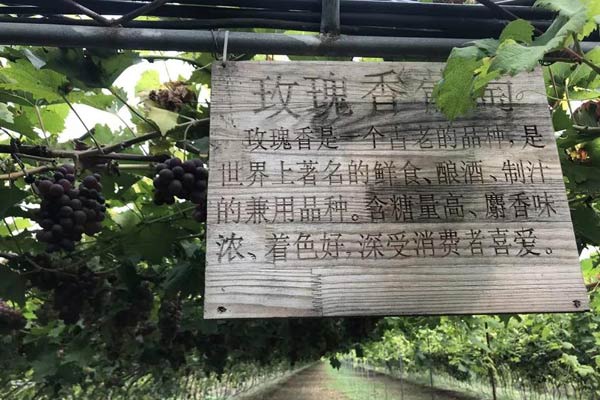 玫瑰香葡萄。
玫瑰香是一个古老的品种，是
世界上著名的鲜食、酿酒、制汁
的兼用品种。含糖量高、麝香味
浓、着色好，深受消费者喜爱。